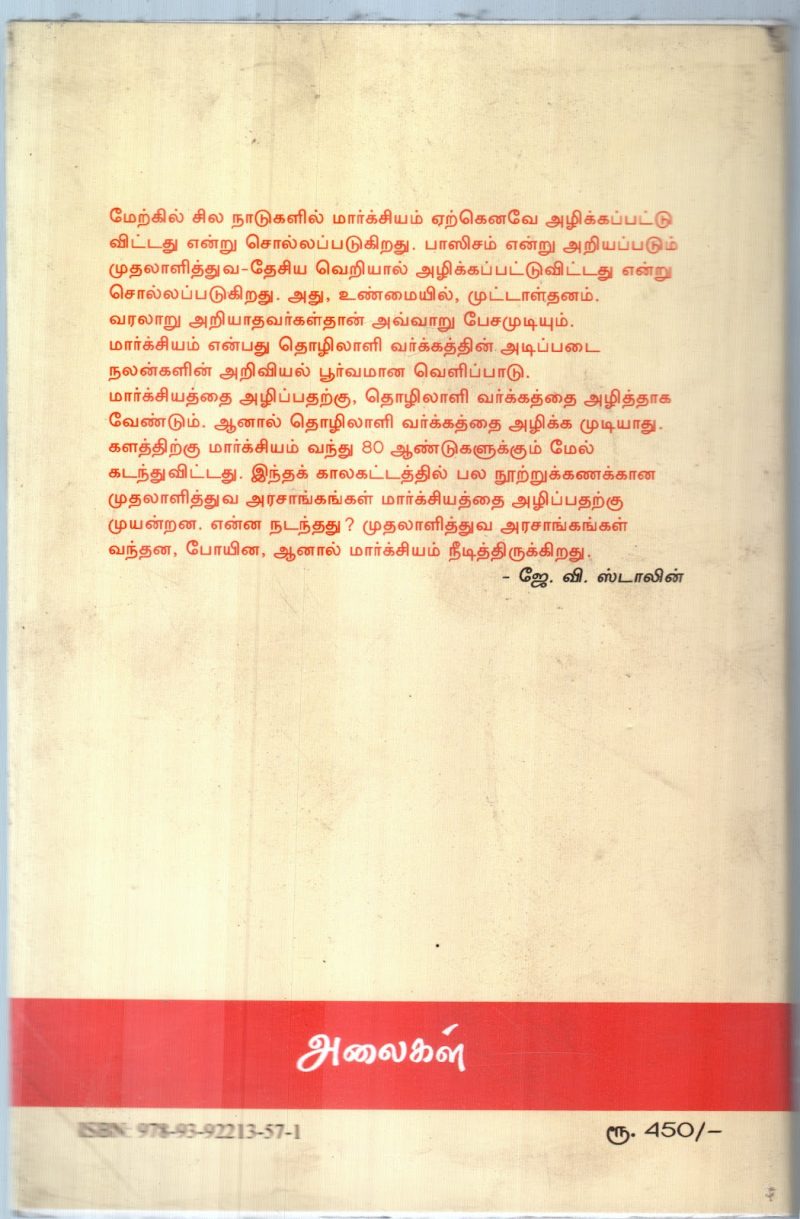 மேற்கில் சில நாடுகளில் மார்க்சியம் ஏற்கெனவே அழிக்கப்பட்டு
விட்டது என்று சொல்லப்படுகிறது. பாஸிசம் என்று அறியப்படும்
முதலாளித்துவ-தேசிய வெறியால் அழிக்கப்பட்டுவிட்டது என்று
சொல்லப்படுகிறது. அது, உண்மையில், முட்டாள்தனம்.
வரலாறு அறியாதவர்கள்தான் அவ்வாறு பேசமுடியும்.
மார்க்சியம் என்பது தொழிலாளி வர்க்கத்தின் அடிப்படை
நலன்களின் அறிவியல் பூர்வமான வெளிப்பாடு.
மார்க்சியத்தை அழிப்பதற்கு, தொழிலாளி வர்க்கத்தை அழித்தாக
வேண்டும். ஆனால் தொழிலாளி வர்க்கத்தை அழிக்க முடியாது.
களத்திற்கு மார்க்சியம் வந்து 80 ஆண்டுகளுக்கும் மேல்
கடந்துவிட்டது. இந்தக் காலகட்டத்தில் பல நூற்றுக்கணக்கான
முதலாளித்துவ அரசாங்கங்கள் மார்க்சியத்தை அழிப்பதற்கு
முயன்றன. என்ன நடந்தது? முதலாளித்துவ அரசாங்கங்கள்
வந்தன, போயின, ஆனால் மார்க்சியம் நீடித்திருக்கிறது.
- ஜே. வி. ஸ்டாலின்
அலைகள்
ISBN: 978-93-92213-57-1
ரூ. 450/-